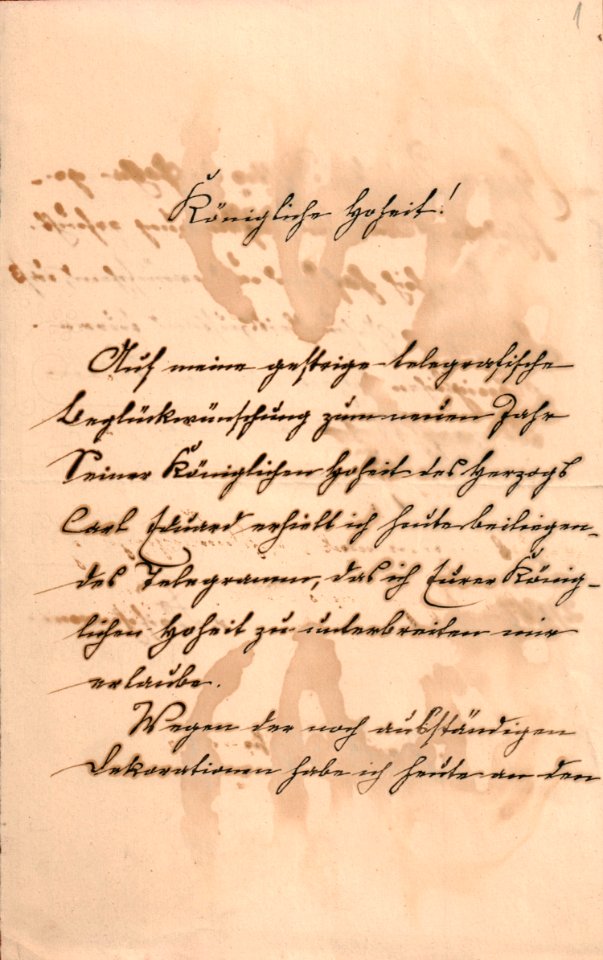 1
Königliche Hoheit!
Auf meine gestrige telegrafische
Beglückwünschung zum neuen Jahr
Seiner Königlichen Hoheit des Herzogs
Carl Eduard erhielt ich heute beiliegen-
des Telegramm, das ich Eurer König-
lichen Hoheit zu unterbreiten mir
erlaube.
Wegen der noch ausständigen
Dekorationen habe ich heute an den